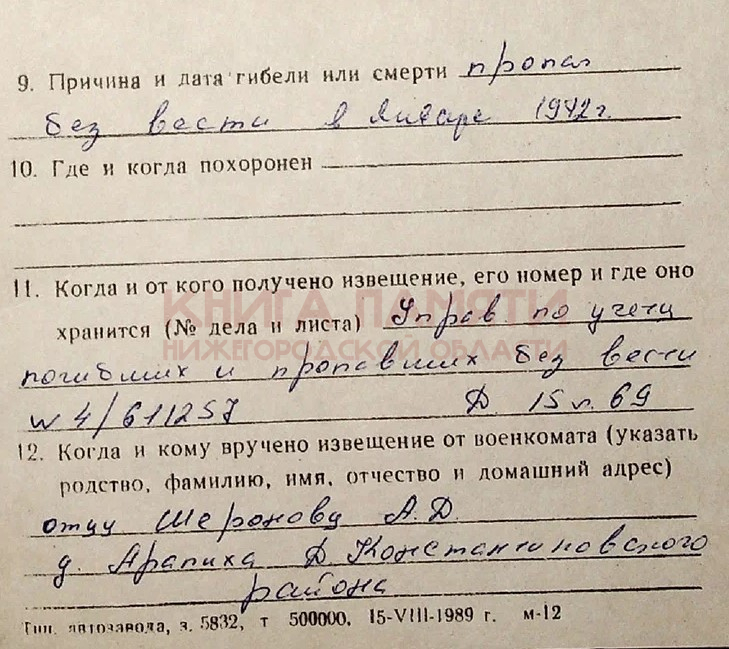 9. Причина и дата гибели или смерти пропал
без вести в январе 1942 г.
10. Где и когда похоронен
11. Когда и от кого получено извещение, его номер и где оно
КНИГА ПАМЯТИ
хранится (№ дела и листа) Управ по учету
НИЖЕГОРОДСКОЙ ОБЛАСТИ
погибших и пропавших без вести
N 4/611257 Д. 15 л. 69
12. Когда и кому вручено извещение от военкомата (указать
родство, фамилию, имя, отчество и домашний адрес)
отцу Шеронову А.Д.
д. Арапиха Д. Константиновского
района
Тип. автозавода, з. 5832, т 500000. 15-VIII-1989 г. м-12